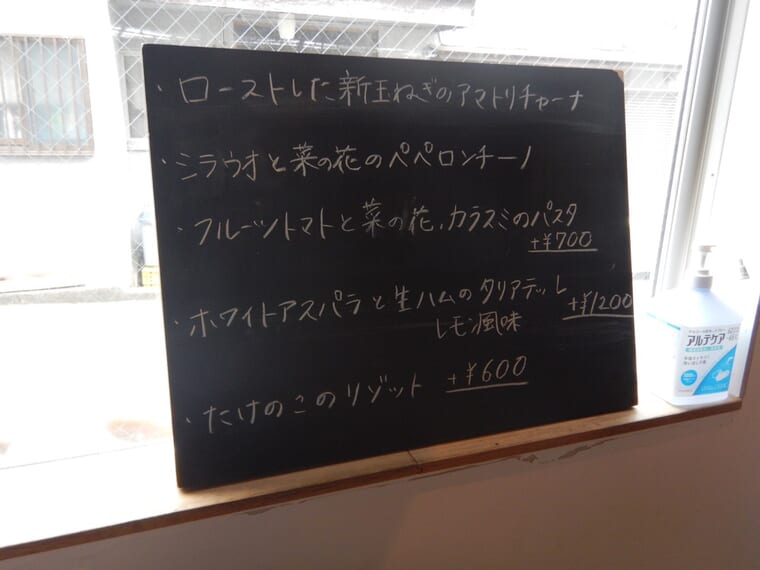 ・ローストした新玉ねぎのアマトリチャーナ
・ミラウオと菜の花のペペロンチーノ
・フルーツトマトと菜の花、カラスミのパスタ
+¥700
・ホワイトアスパラと生ハムのタリアテッレ
+¥1200
レモン風味
・たけのこのリゾット +¥600
アルテケア